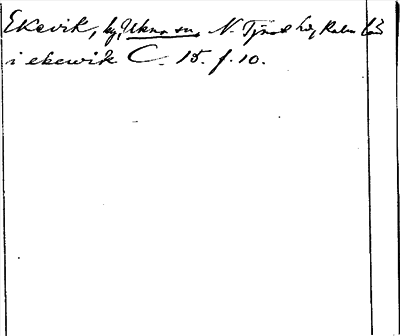 Ekevik, by, Ukna sn, N. Tjust hd, Kalm län
i ekewik C. 15. f. 10.